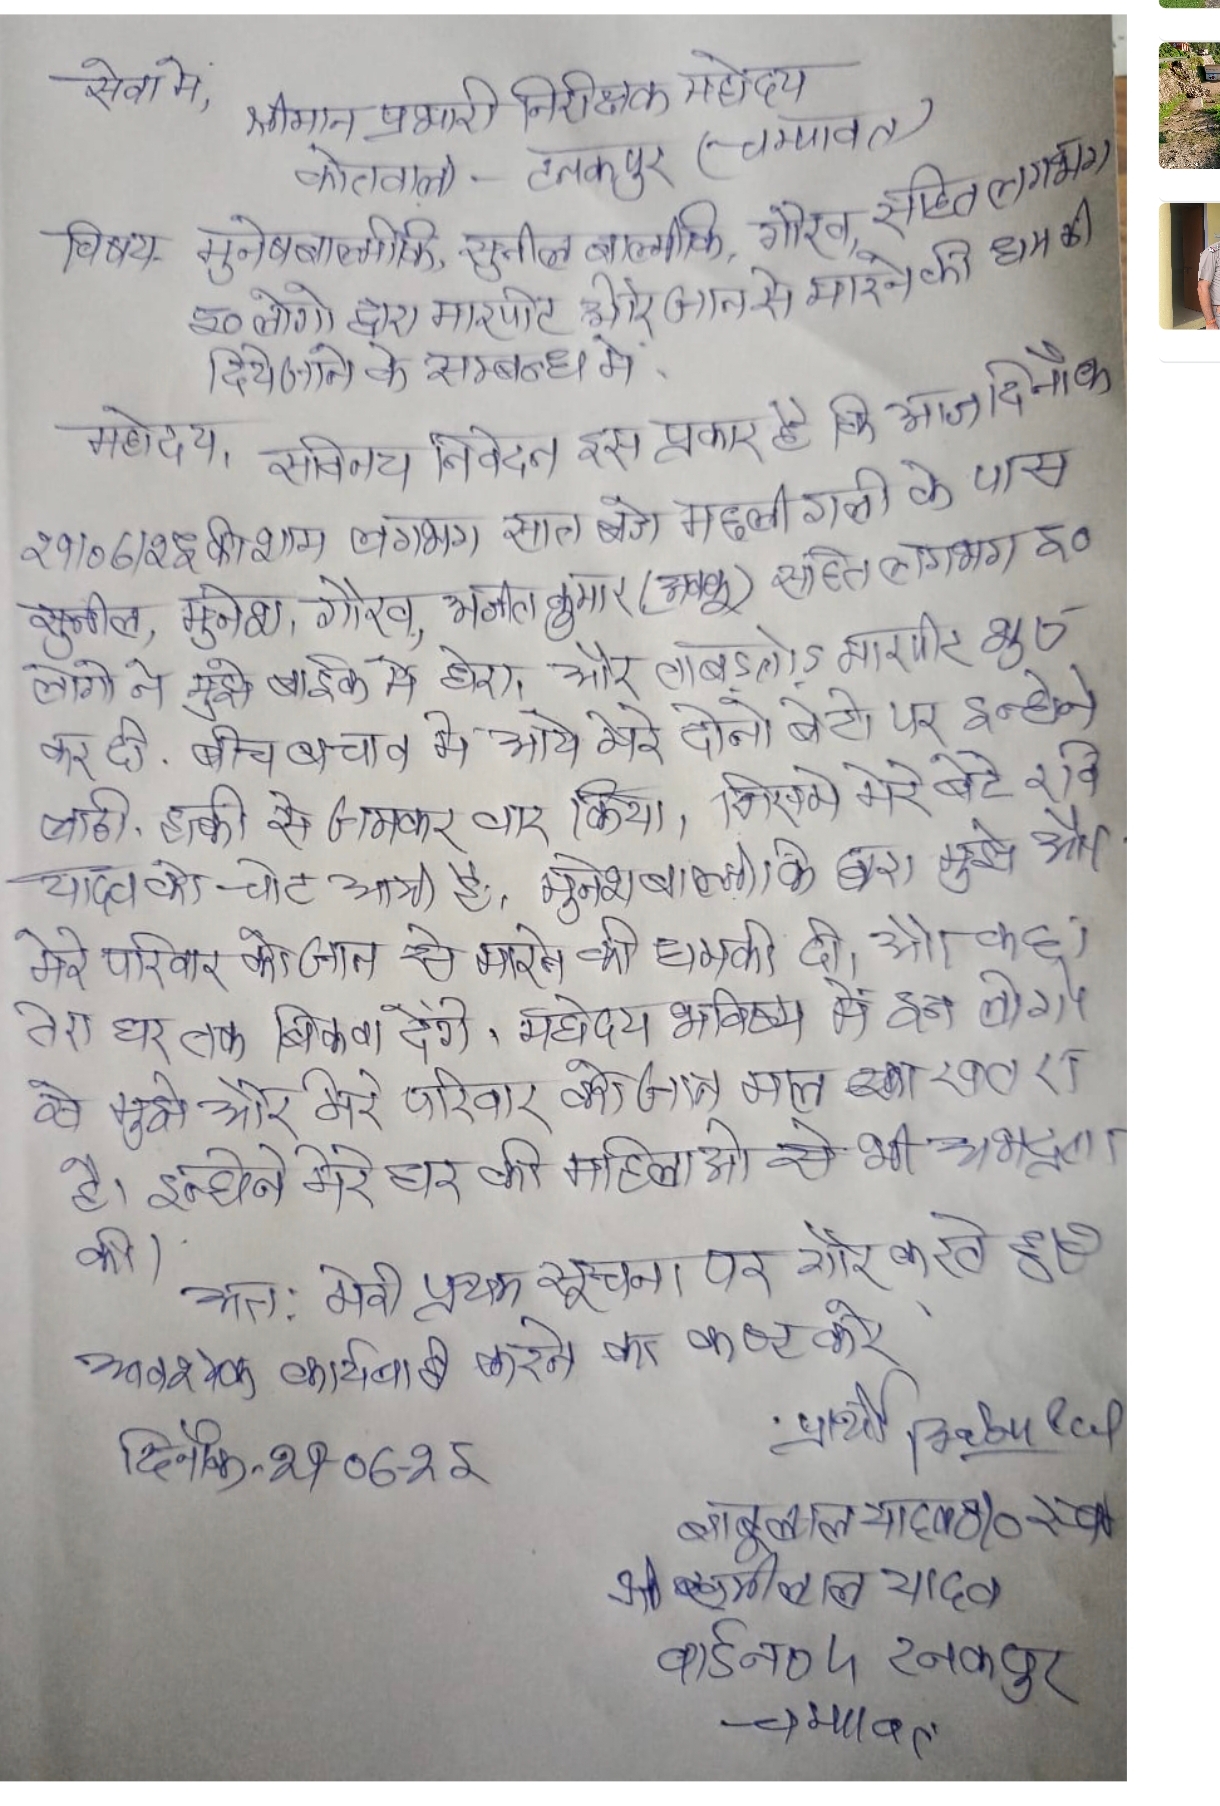 सेवा में,
श्रीमान प्रभारी निरीक्षक महोदय
कोतवाली - टनकपुर (चम्पावत)
विषय- मुनेष बाल्मीकि, सुनील बाल्मीकि, गौरव, सहित लगभग
लोगो द्वारा मारपीट और जान से मारने की धमकी
दिये जाने के सम्बन्ध में.
महोदय, सविनय निवेदन इस प्रकार है कि आज दिनाँक
की शाम लगभग सात बजे मछली गली के पास
सुनील, मुनेश, गौरव, कुमार सहित लगभग
लोगो ने मुझे बाईक में घेरा, और ताबड़तोड़ मारपीट शुरु
कर दी. बीच बचाव में आये मेरे दोनो बेटो पर इन्होने
लाठी. हाकी से जमकर वार किया, जिसमे मेरे बेटे रवि
यादव को चोट आयी है, मुनेश बाल्मीकि द्वारा मुझे और
मेरे परिवार को जान से मारने की धमकी दी, और कहा
तेरा घर तक बिकवा देंगे, महोदय भविष्य में इन लोगो
से मुझे और मेरे परिवार को जान माल का खतरा
है। इन्होने मेरे घर की महिलाओ से भी अभद्रता
की।
अतः मेरी प्रथम सूचना पर गौर करते हुए
आवश्यक कार्यवाही करने का कष्ट करें
दिनाँक-
प्रार्थी
बाबूलाल यादव S/O स्व०
श्री लाल यादव
वार्ड न० 5 टनकपुर
चम्पावत